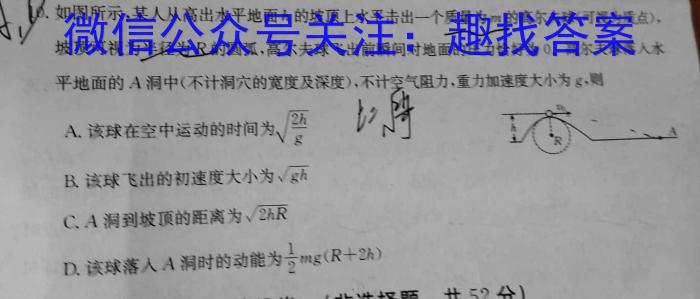 10. 如图所示,某人从高出水平地面h的坡顶上水平击出一个质量为m的高尔夫球(可视为质点),
微信公众号关注：趣找答案
R的圆弧,高尔夫球飞出前瞬间对地面的
平地面的A洞中(不计洞穴的宽度及深度),不计空气阻力,重力加速度大小为g,则
A. 该球在空中运动的时间为√(2h/g)
B. 该球飞出的初速度大小为√gh
C. A洞到坡顶的距离为√2hR
D. 该球落入A洞时的动能为1/2 mg(R+2h)
h
R
v₀
A
共52分)